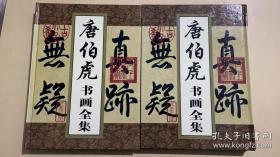 唐伯虎
书画全集
真跡
無疑
唐伯虎
书画全集
真跡
無疑
孔夫子旧书网